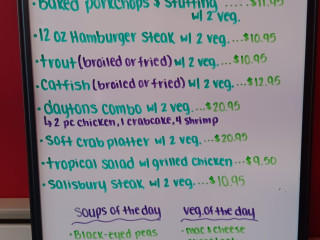 • Baked porkchops & Stuffing ..... $11.95
w/ 2 veg.
• 12 oz Hamburger Steak w/ 2 veg....$10.95
• trout (broiled or fried) w/ 2 veg. ... $10.95
• Catfish (broiled or fried) w/ 2 veg. ... $12.95
• daytons combo w/ 2 veg....$20.95
↳ 2 pc chicken, 1 crabcake, 4 shrimp
• Soft crab platter w/ 2 veg....$20.95
• tropical salad w/ grilled chicken...$9.50
• Salisbury Steak w/ 2 veg....$10.95
soups of the day
• Black-eyed peas
veg. of the day
• mac & cheese